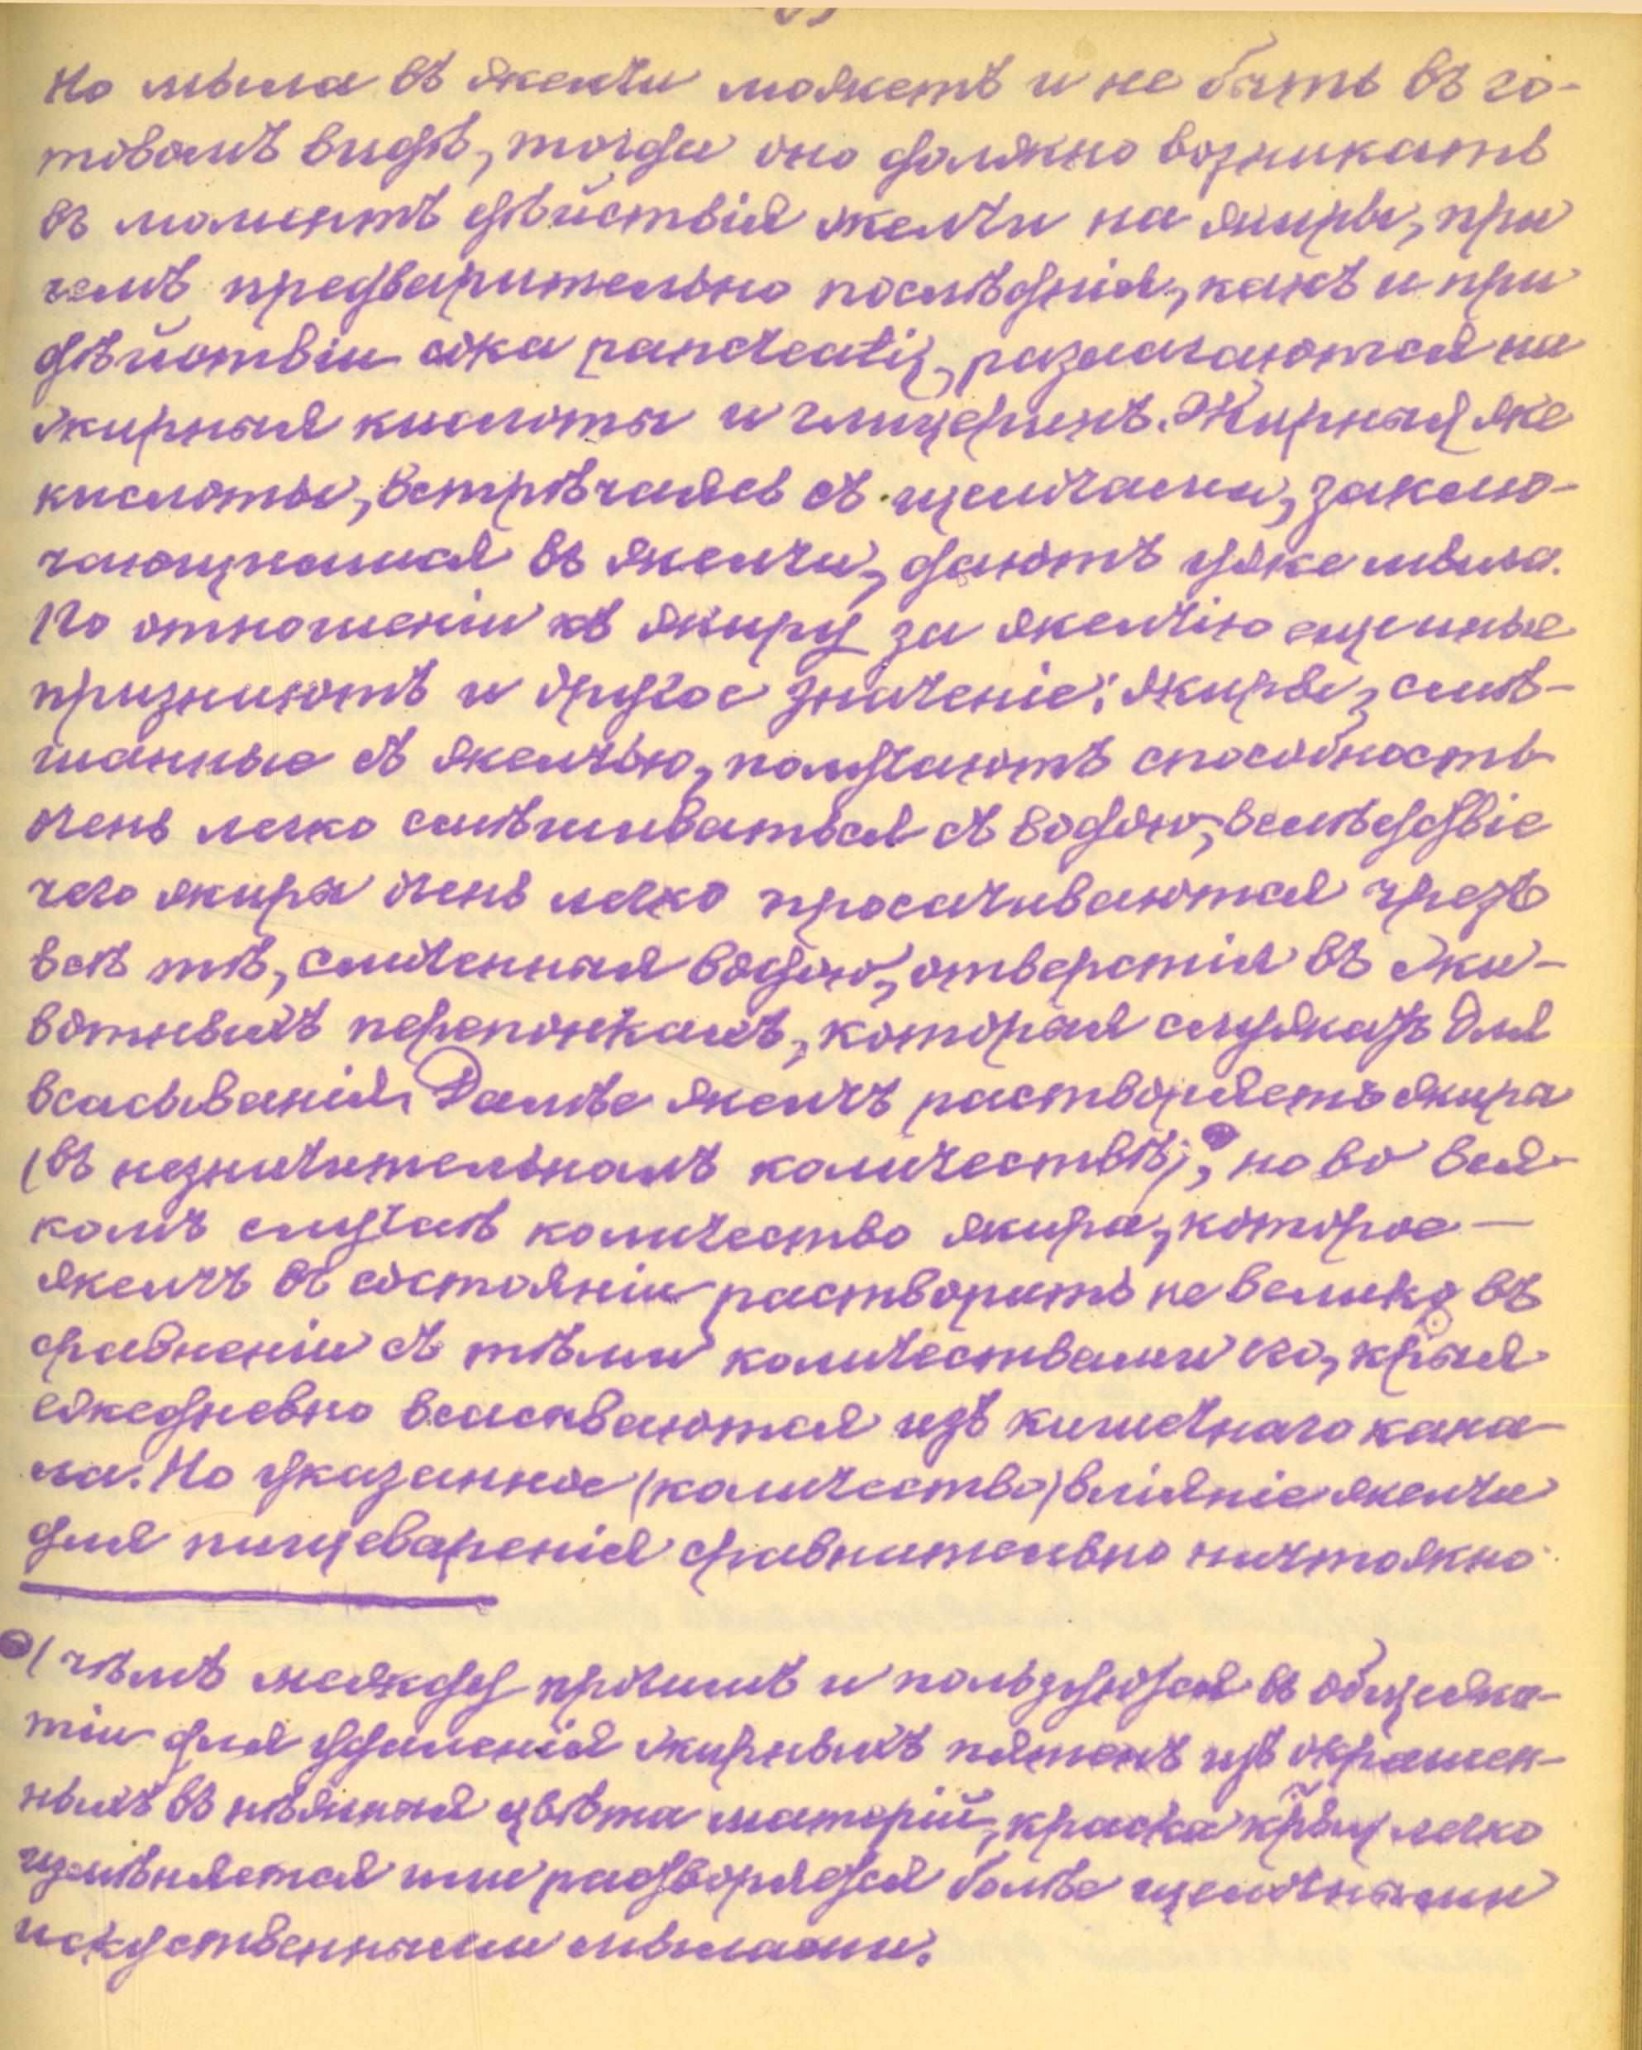 Но мыла въ желчи можетъ и не быть въ го-
товомъ видѣ, тогда оно должно возникать
въ моментъ дѣйствія желчи на жиры, при
чемъ предварительно послѣднія, какъ и при
дѣйствіи сока pancreatis, разлагаются на
жирныя кислоты и глицеринъ. Жирныя же
кислоты, встрѣчаясь съ щелочами, заклю-
чающимися въ желчи, даютъ уже мыла.
По отношенію къ жиру за желчію ученые
признаютъ и другое значеніе: жиры, смѣ-
шанные съ желчью, получаютъ способность
очень легко смѣшиваться съ водою, вслѣдствіе
чего жиры очень легко просачиваются чрезъ
всѣ тѣ, смоченныя водою, отверстія въ жи-
вотныхъ перепонкахъ, которыя служатъ для
всасыванія. Далѣе желчь растворяетъ жира
(въ незначительномъ количествѣ), но во вся-
комъ случаѣ количество жира, которое —
желчь въ состояніи растворить не велико въ
сравненіи съ тѣми количествами его, крыя
ежедневно всасываются изъ кишечнаго кана-
ла. Но указанное (количество) вліяніе желчи
для пищеваренія сравнительно ничтожно.
( чѣмъ между прочимъ и пользуются въ общежи-
тіи для удаленія жирныхъ пятенъ изъ окрашен-
ныхъ въ нѣжныя цвѣта матерій, краска крыхъ легко
измѣняется или растворяется болѣе щелочными
искуственными мылами.